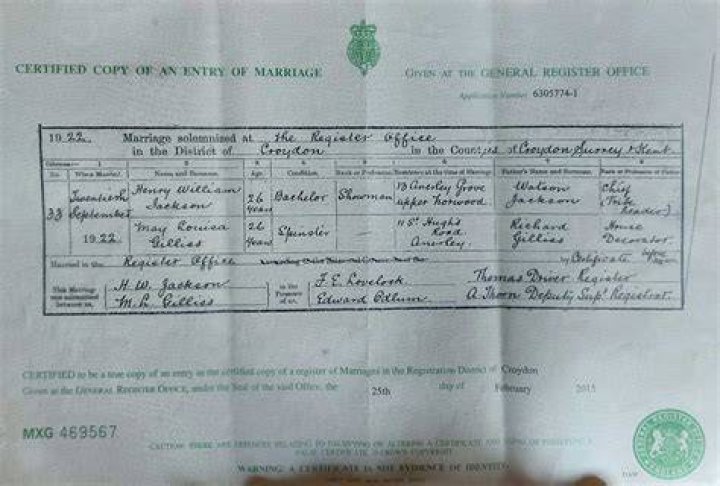 CERTIFIED COPY OF AN ENTRY OF MARRIAGE
GIVEN AT THE GENERAL REGISTER OFFICE
Application Number 6305774-1
1922. Marriage solemnized at the Register Office
in the District of Croydon in the Counties of Croydon Surrey & Kent
Columns:— 1 2 3 4 5 6 7 8
No. When Married. Name and Surname. Age. Condition. Rank or Profession. Residence at the time of Marriage. Father's Name and Surname. Rank or Profession of Father.
33 Twentieth September 1922.
Henry William Jackson 26 years Bachelor Showman 13 Anerley Grove upper Norwood Watson Jackson Chief (Tribe Leader)
May Louisa Gilliss 26 years Spinster — 11 St Hughs Road Anerley. Richard Gilliss House Decorator
Married in the Register Office by Certificate before me,
This Marriage was solemnized between us,
H. W. Jackson
M. L. Gilliss
in the Presence of us,
F. E. Lovelock
Edward Odlum
Thomas Driver Register
A Thorn Deputy Supt Registrar.
CERTIFIED to be a true copy of an entry in the certified copy of a register of Marriages in the Registration District of Croydon
Given at the GENERAL REGISTER OFFICE, under the Seal of the said Office, the 25th day of February 2015
MXG 469567
CAUTION: THERE ARE OFFENCES RELATING TO FALSIFYING OR ALTERING A CERTIFICATE
CROWN COPYRIGHT
WARNING: A CERTIFICATE IS NOT EVIDENCE OF IDENTITY.